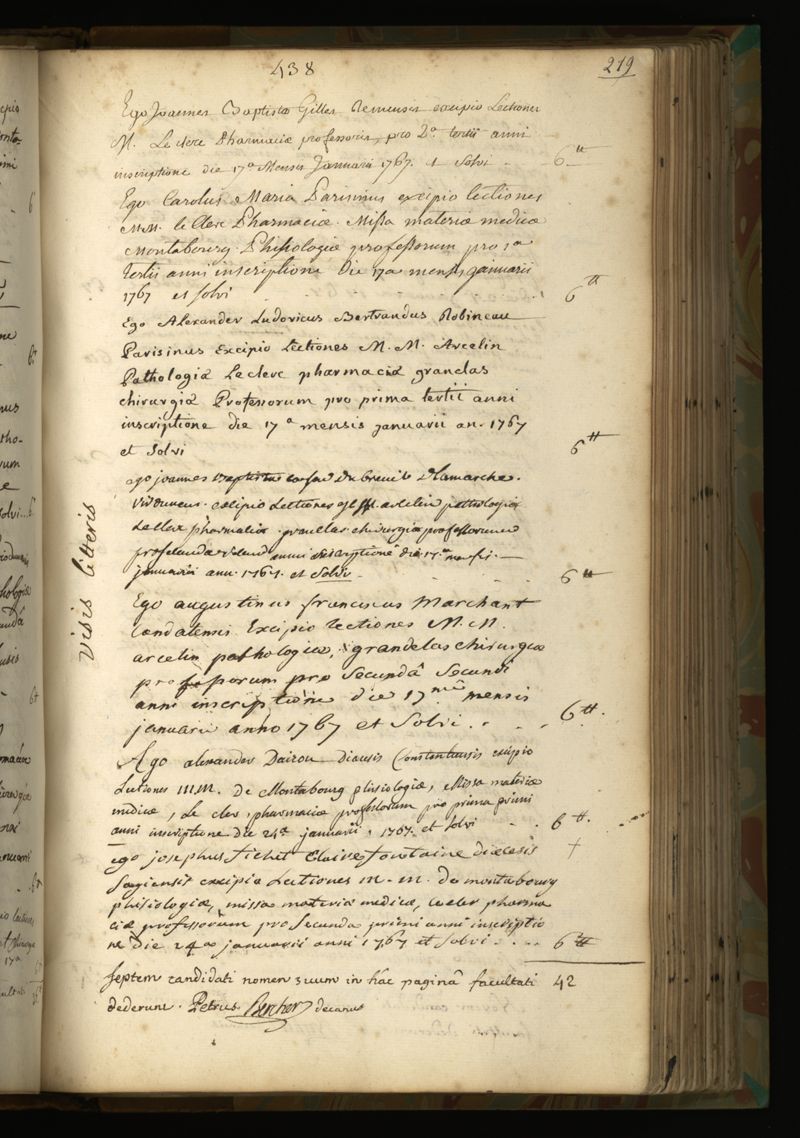 438
219
Ego Joannes Baptista Gilles Remensis excipio Lectiones
M. Le clerc Pharmaciæ professoris, pro 2ª tertii anni
inscriptione die 17ª Mensis Januarii 1767. & Solvi - 6tt
Ego Carolus Maria Parisinus excipio lectiones
M.M. le Clerc Pharmaciæ. Missa materiæ medicæ
Montabourg Phisiologiæ professorum pro 1ª
tertii anni inscriptione die 17a mensis januarii
1767 et solvi . . . . 6tt
Ego Alexander Ludovicus Bertrandus Robineau
Parisinus Excipio Lectiones M. M. Arcelin
Pathologiæ Le clerc pharmaciæ grandelas
chirurgiæ Professorum pro prima tertii anni
inscriptione die 17ª mensis januarii an. 1767
et Solvi 6tt
ego joannes Baptista du breuil Delamarche
excipio Lectiones arcelin pathologiæ
Le clerc pharmaciæ. grandelas chirurgiæ professorum
pro secunda anni inscriptione die 17ª
januarii ann. 1767. et Solvi - 6tt
Visis litteris
Ego augustinus franciscus Marchant
Condatensis. Excipio lectiones M. M.
arcelin pathologiæ, grandelas chirurgiæ
professorum pro Secundâ Secundi
anni inscriptione die 17mâ mensis
januarii anno 1767 et Solvi . . . 6tt.
Ego alexander Dairou Diœcesis Constantiensis excipio
Lectiones M.M. De Montabourg phisiologiæ, Missa materiæ
medicæ, Le clerc pharmaciæ professorum pro prima primi
anni inscriptione die 24ª januarii, 1767. et solvi . . 6tt.
ego josephus fichet Claire fontaine diœcesis
Sagiensis excipio Lectiones m. m. De montabourg
phisiologiæ, missa materiæ medicæ, Leclerc pharma
ciæ professorum pro Secunda primi anni inscriptio
ne die 24a januarii anni 1767 et Solvi . . . . 6tt
septem candidati nomen suum in hâc paginâ facultati 42
dederunt. Petrus Bercher decanus